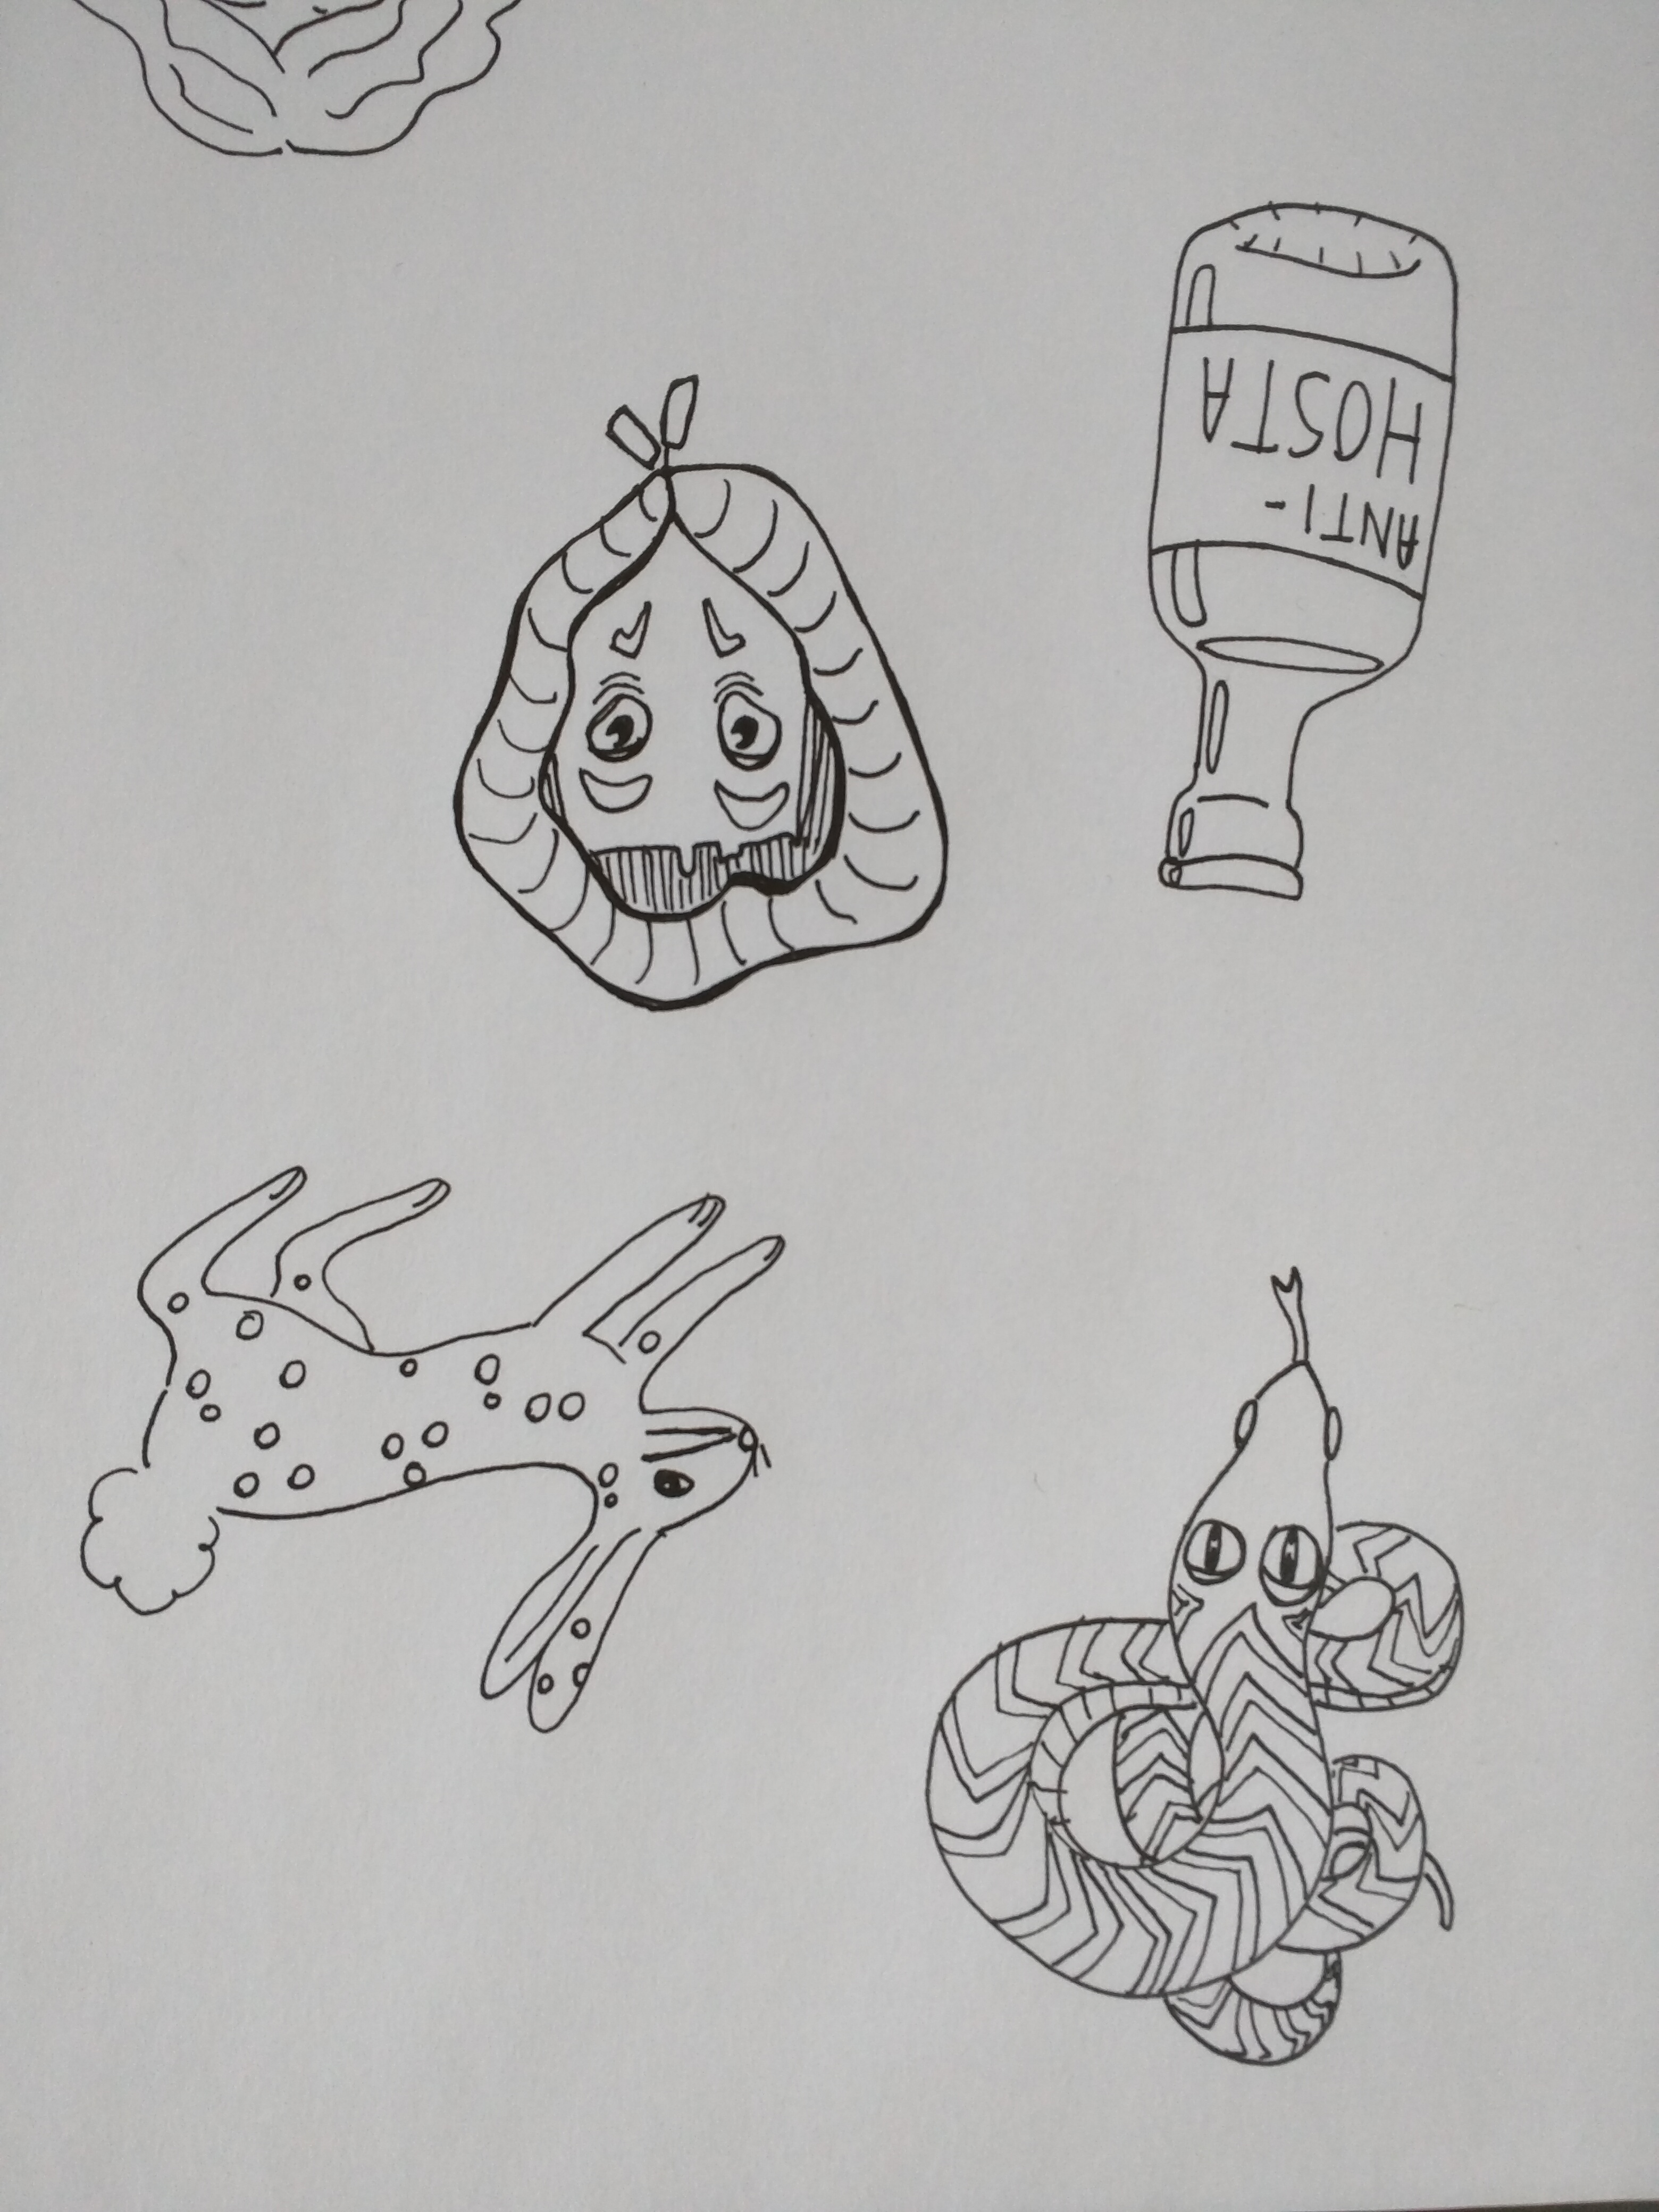 ANTI-
HOSTA